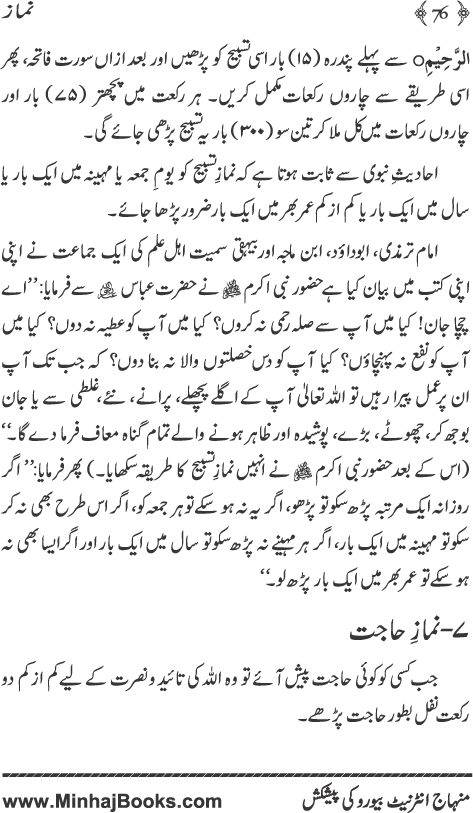 نماز ﴿76﴾
الرَّحِيْمِ○ سے پہلے پندرہ (۱۵) بار اسی تسبیح کو پڑھیں اور بعد ازاں سورت فاتحہ، پھر
اسی طریقے سے چاروں رکعات مکمل کریں۔ ہر رکعت میں پچھتر (۷۵) بار اور
چاروں رکعات میں کل ملا کر تین سو (۳۰۰) بار یہ تسبیح پڑھی جائے گی۔
احادیثِ نبوی سے ثابت ہوتا ہے کہ نمازِ تسبیح کو یومِ جمعہ یا مہینہ میں ایک بار یا
سال میں ایک بار یا کم از کم عمر بھر میں ایک بار ضرور پڑھا جائے۔
امام ترمذی، ابوداؤد، ابن ماجہ اور بیہقی سمیت اھلِ علم کی ایک جماعت نے اپنی
اپنی کتب میں بیان کیا ہے حضور نبی اکرم ﷺ نے حضرت عباس ؓ سے فرمایا: ’’اے
چچا جان! کیا میں آپ سے صلہ رحمی نہ کروں؟ کیا میں آپ کو عطیہ نہ دوں؟ کیا میں
آپ کو نفع نہ پہنچاؤں؟ کیا آپ کو دس خصلتوں والا نہ بنا دوں؟ کہ جب تک آپ
ان پر عمل پیرا رہیں تو اللہ تعالیٰ آپ کے اگلے پچھلے، پرانے، نئے، غلطی سے یا جان
بوجھ کر، چھوٹے، بڑے، پوشیدہ اور ظاہر ہونے والے تمام گناہ معاف فرما دے گا۔‘‘
(اس کے بعد حضور نبی اکرم ﷺ نے انہیں نمازِ تسبیح کا طریقہ سکھایا۔) پھر فرمایا: ’’اگر
روزانہ ایک مرتبہ پڑھ سکو تو پڑھو، اگر یہ نہ ہو سکے تو ہر جمعہ کو، اگر اس طرح بھی نہ کر
سکو تو مہینہ میں ایک بار، اگر ہر مہینے نہ پڑھ سکو تو سال میں ایک بار اور اگر ایسا بھی نہ
ہو سکے تو عمر بھر میں ایک بار پڑھ لو۔‘‘
۷- نمازِ حاجت
جب کسی کو کوئی حاجت پیش آئے تو وہ اللہ کی تائید و نصرت کے لیے کم از کم دو
رکعت نفل بطور حاجت پڑھے۔
منہاج انٹرنیٹ بیورو کی پیشکش www.MinhajBooks.com